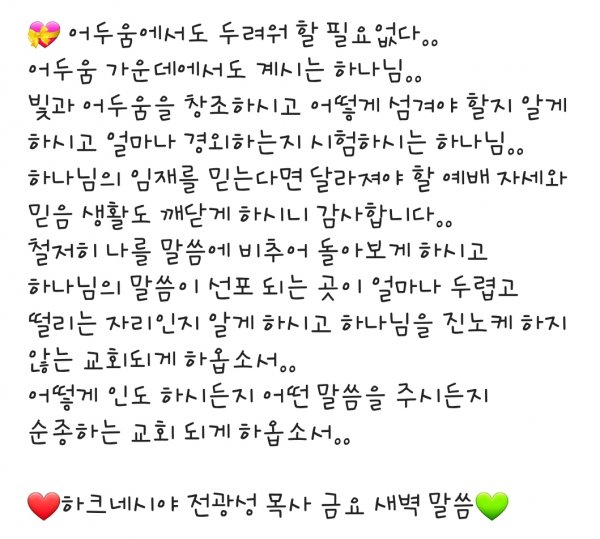 💝 어두움에서도 두려워 할 필요없다。。
어두움 가운데에서도 계시는 하나님。。
빛과 어두움을 창조하시고 어떻게 섬겨야 할지 알게
하시고 얼마나 경외하는지 시험하시는 하나님。。
하나님의 임재를 믿는다면 달라져야 할 예배 자세와
믿음 생활도 깨닫게 하시니 감사합니다。。
철저히 나를 말씀에 비추어 돌아보게 하시고
하나님의 말씀이 선포 되는 곳이 얼마나 두렵고
떨리는 자리인지 알게 하시고 하나님을 진노케 하지
않는 교회되게 하옵소서。。
어떻게 인도 하시든지 어떤 말씀을 주시든지
순종하는 교회 되게 하옵소서。。
❤️하크네시야 전광성 목사 금요 새벽 말씀💚